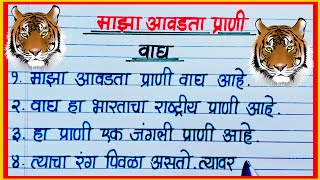 माझा आवडता प्राणी
वाघ
१. माझा आवडता प्राणी वाघ आहे.
२. वाघ हा भारताचा राष्ट्रीय प्राणी आहे.
३. हा प्राणी एक जंगली प्राणी आहे.
४. त्याचा रंग पिवळा असतो. त्यावर